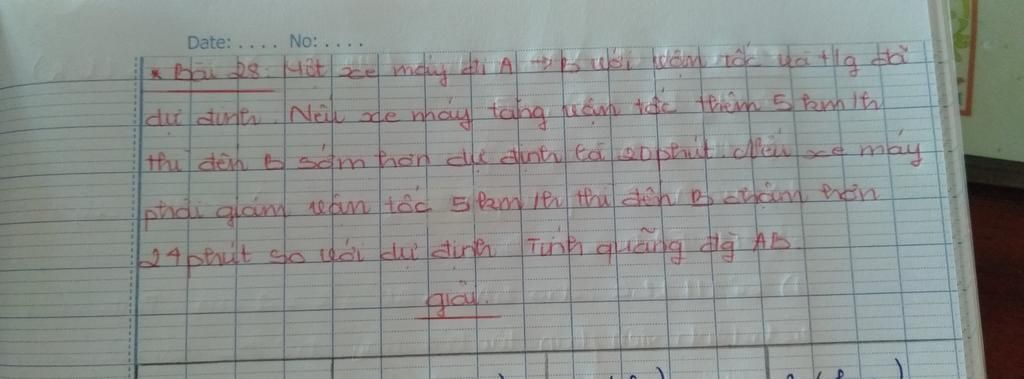 Date: .... No: ....
* Bài 28: Một xe máy đi A → B với vận tốc và t/g đã
dự định. Nếu xe máy tăng vận tốc thêm 5 km/h
thì đến B sớm hơn dự định là 20 phút. Nếu xe máy
phải giảm vận tốc 5 km/h thì đến B chậm hơn
24 phút so với dự định Tính quãng đg AB
giải.